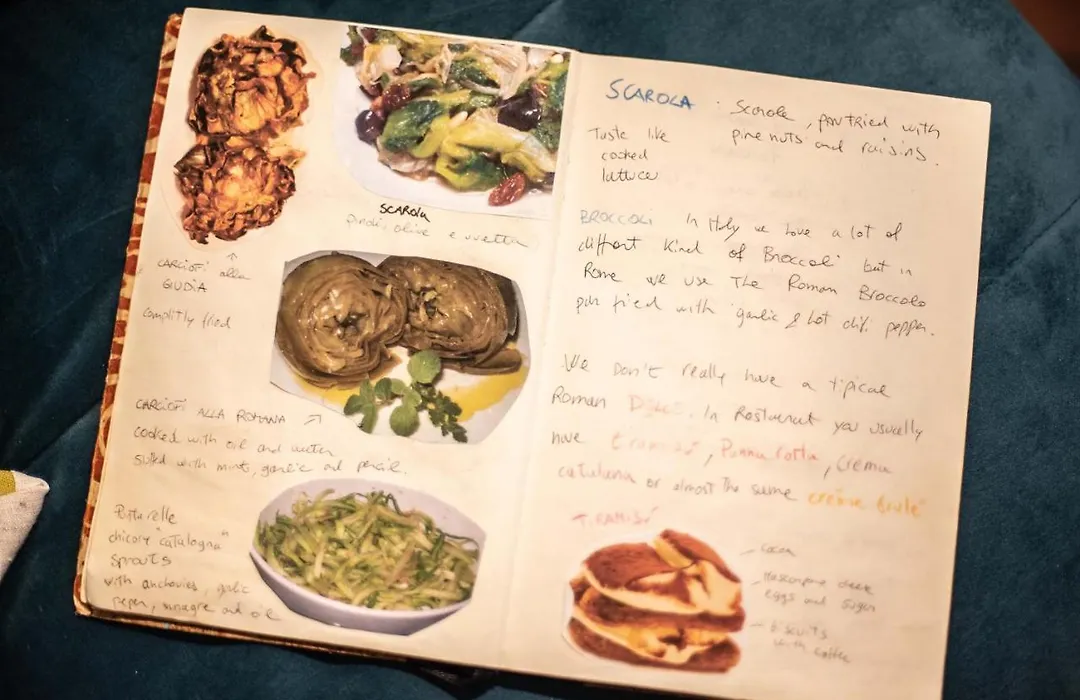 SCAROLA
pinoli, olive e uvetta
CARCIOFI alla
GIUDIA
complitly fried
CARCIOFI ALLA ROMANA
cooked with oil and water
stuffed with mint, garlic and
Puntarelle
chicory "catalogna"
sprouts
with anchovies, garlic
peper, vinagre and oil
SCAROLA : Scarole, pan fried with
pine nuts and raisins.
Taste like
cooked
lattuce
BROCCOLI In Italy we have a lot of
diffent kind of Broccoli but in
Rome we use The Roman Broccolo
pan fried with garlic & hot chili pepper.
We Don't really have a tipical
Roman Dolce. In Restaurant you usually
have tiramisú, Panna Cotta, Crema
catalana or almost the same creme brulé
TIRAMISÚ
cocoa
Mascarpone
eggs and sugar
Biscuits
with coffee